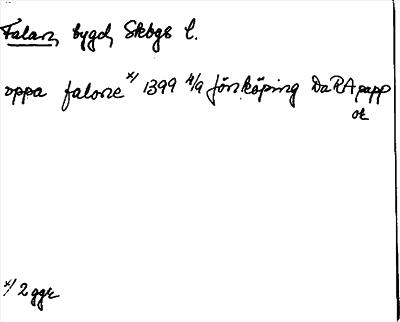 Falan, bygd, Skbgs l.
oppa falone x/ 1399 4/9 Jönköping DaRA papp
or
x/ 2 ggr